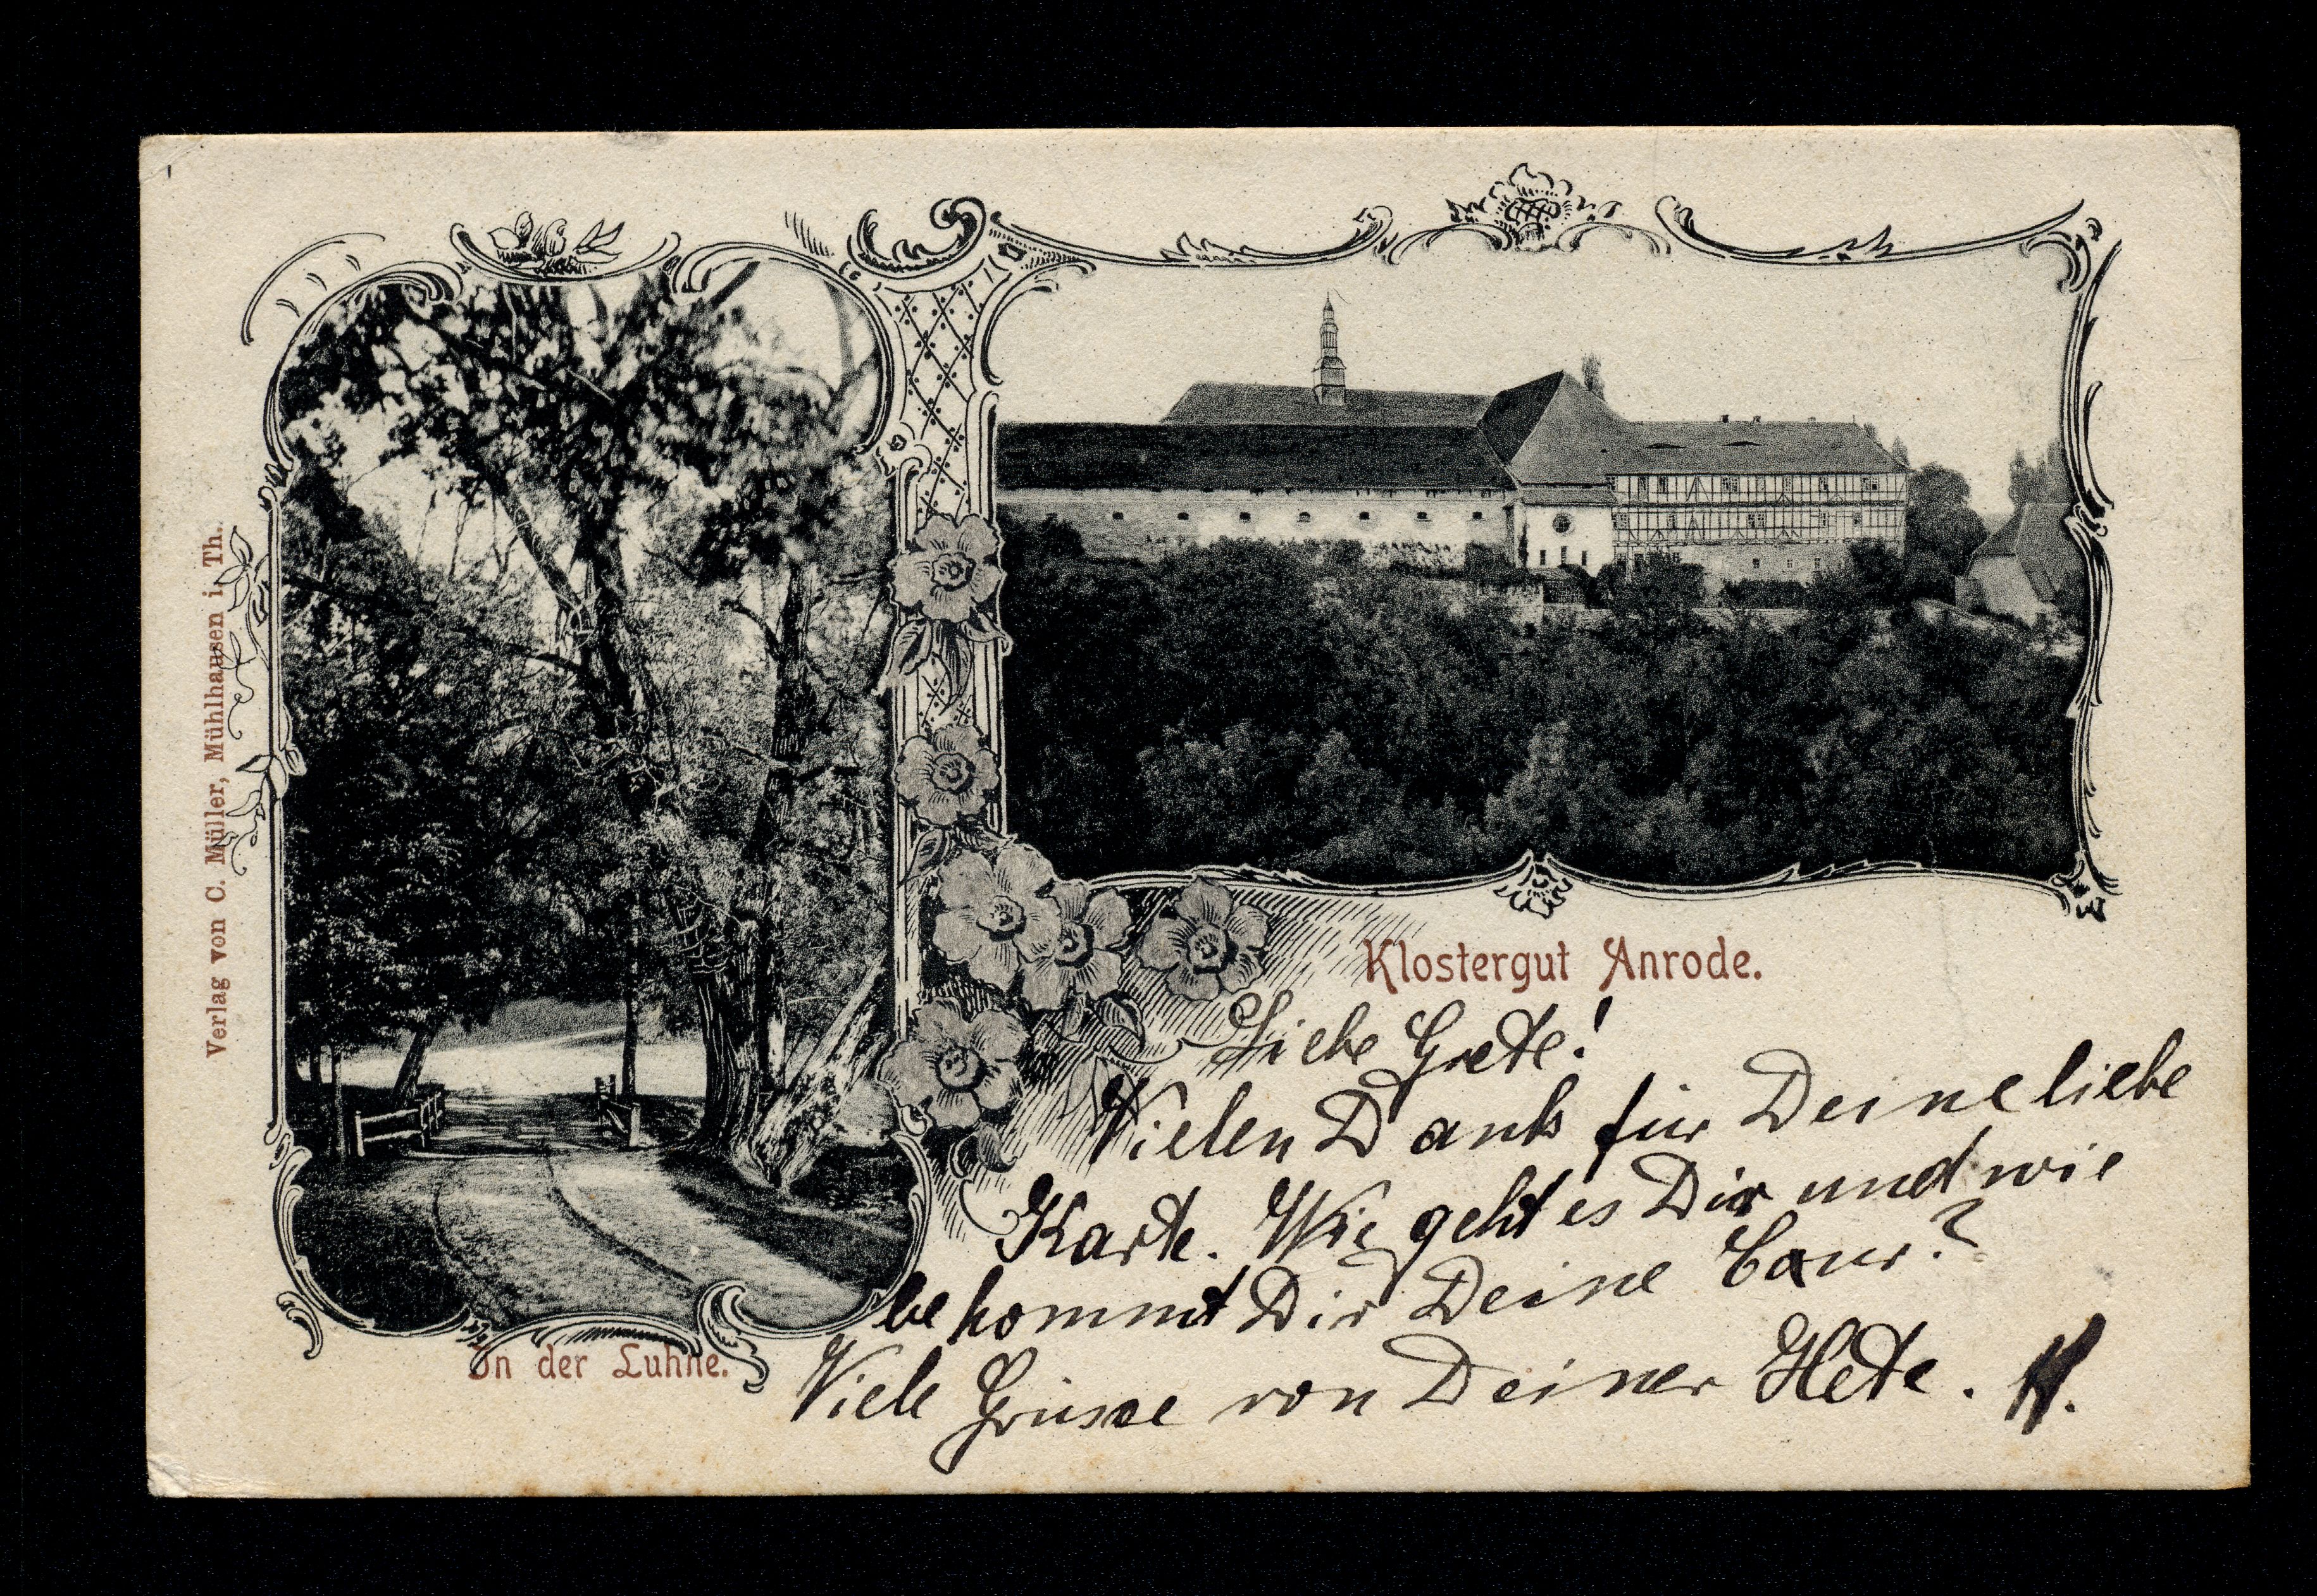 Verlag von C. Müller, Mühlhausen i. Th.
Klostergut Anrode.
In der Luhne.
Liebe Grete!
Vielen Dank für Deine liebe
Karte. Wie geht es Dir und wie
bekommt Dir Deine Cour?
Viele Grüsse von Deiner Hete. H.